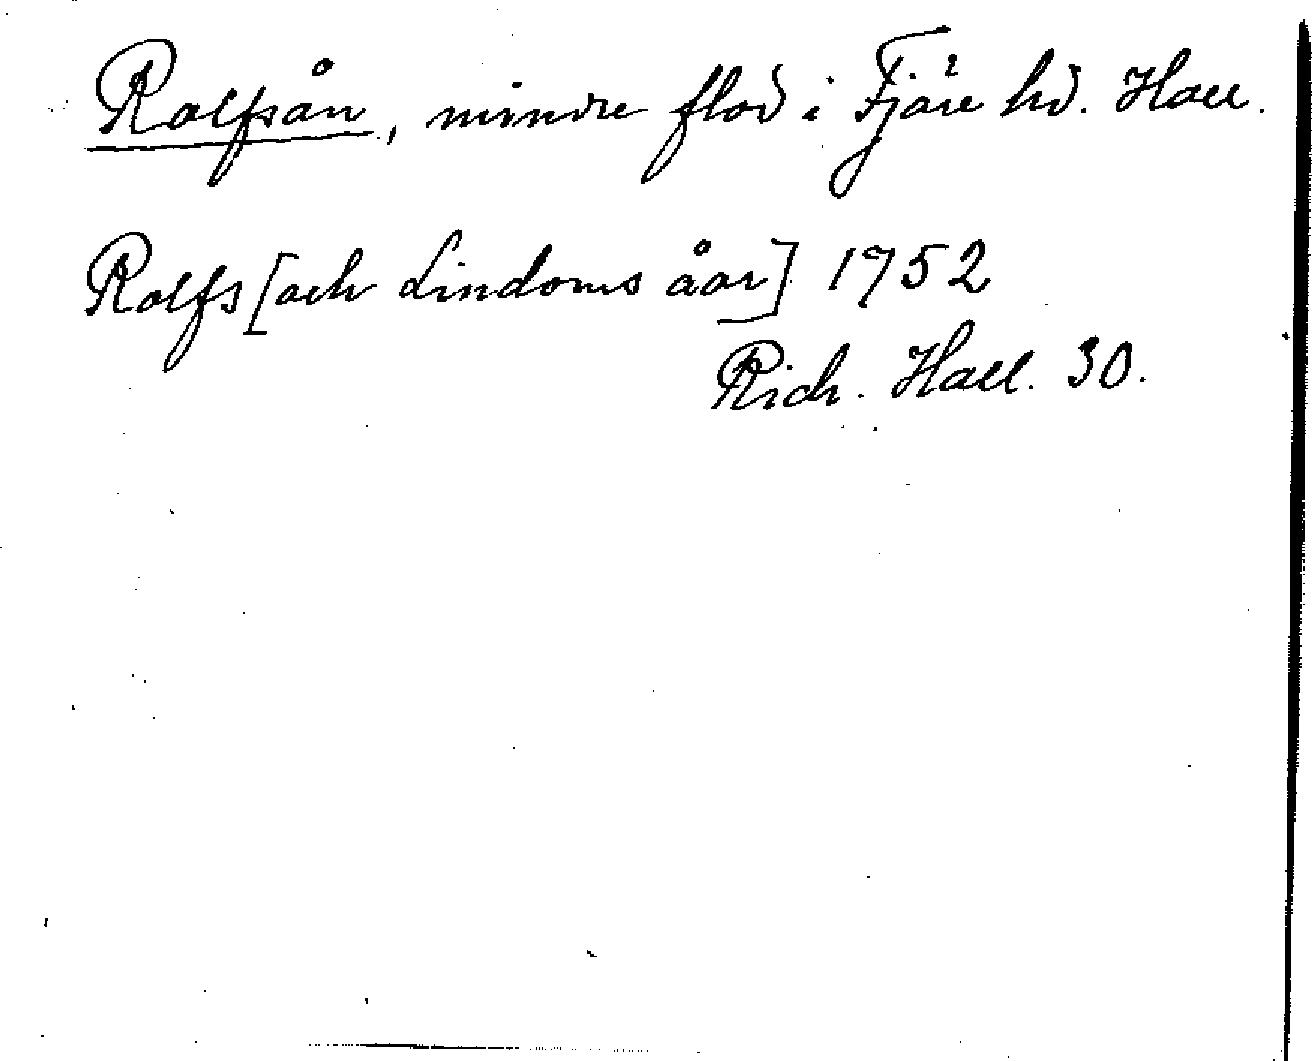 Rolfsån, mindre flod i Fjäre hd. Hall.
Rolfs [och Lindoms åar] 1752
Rich. Hall. 30.